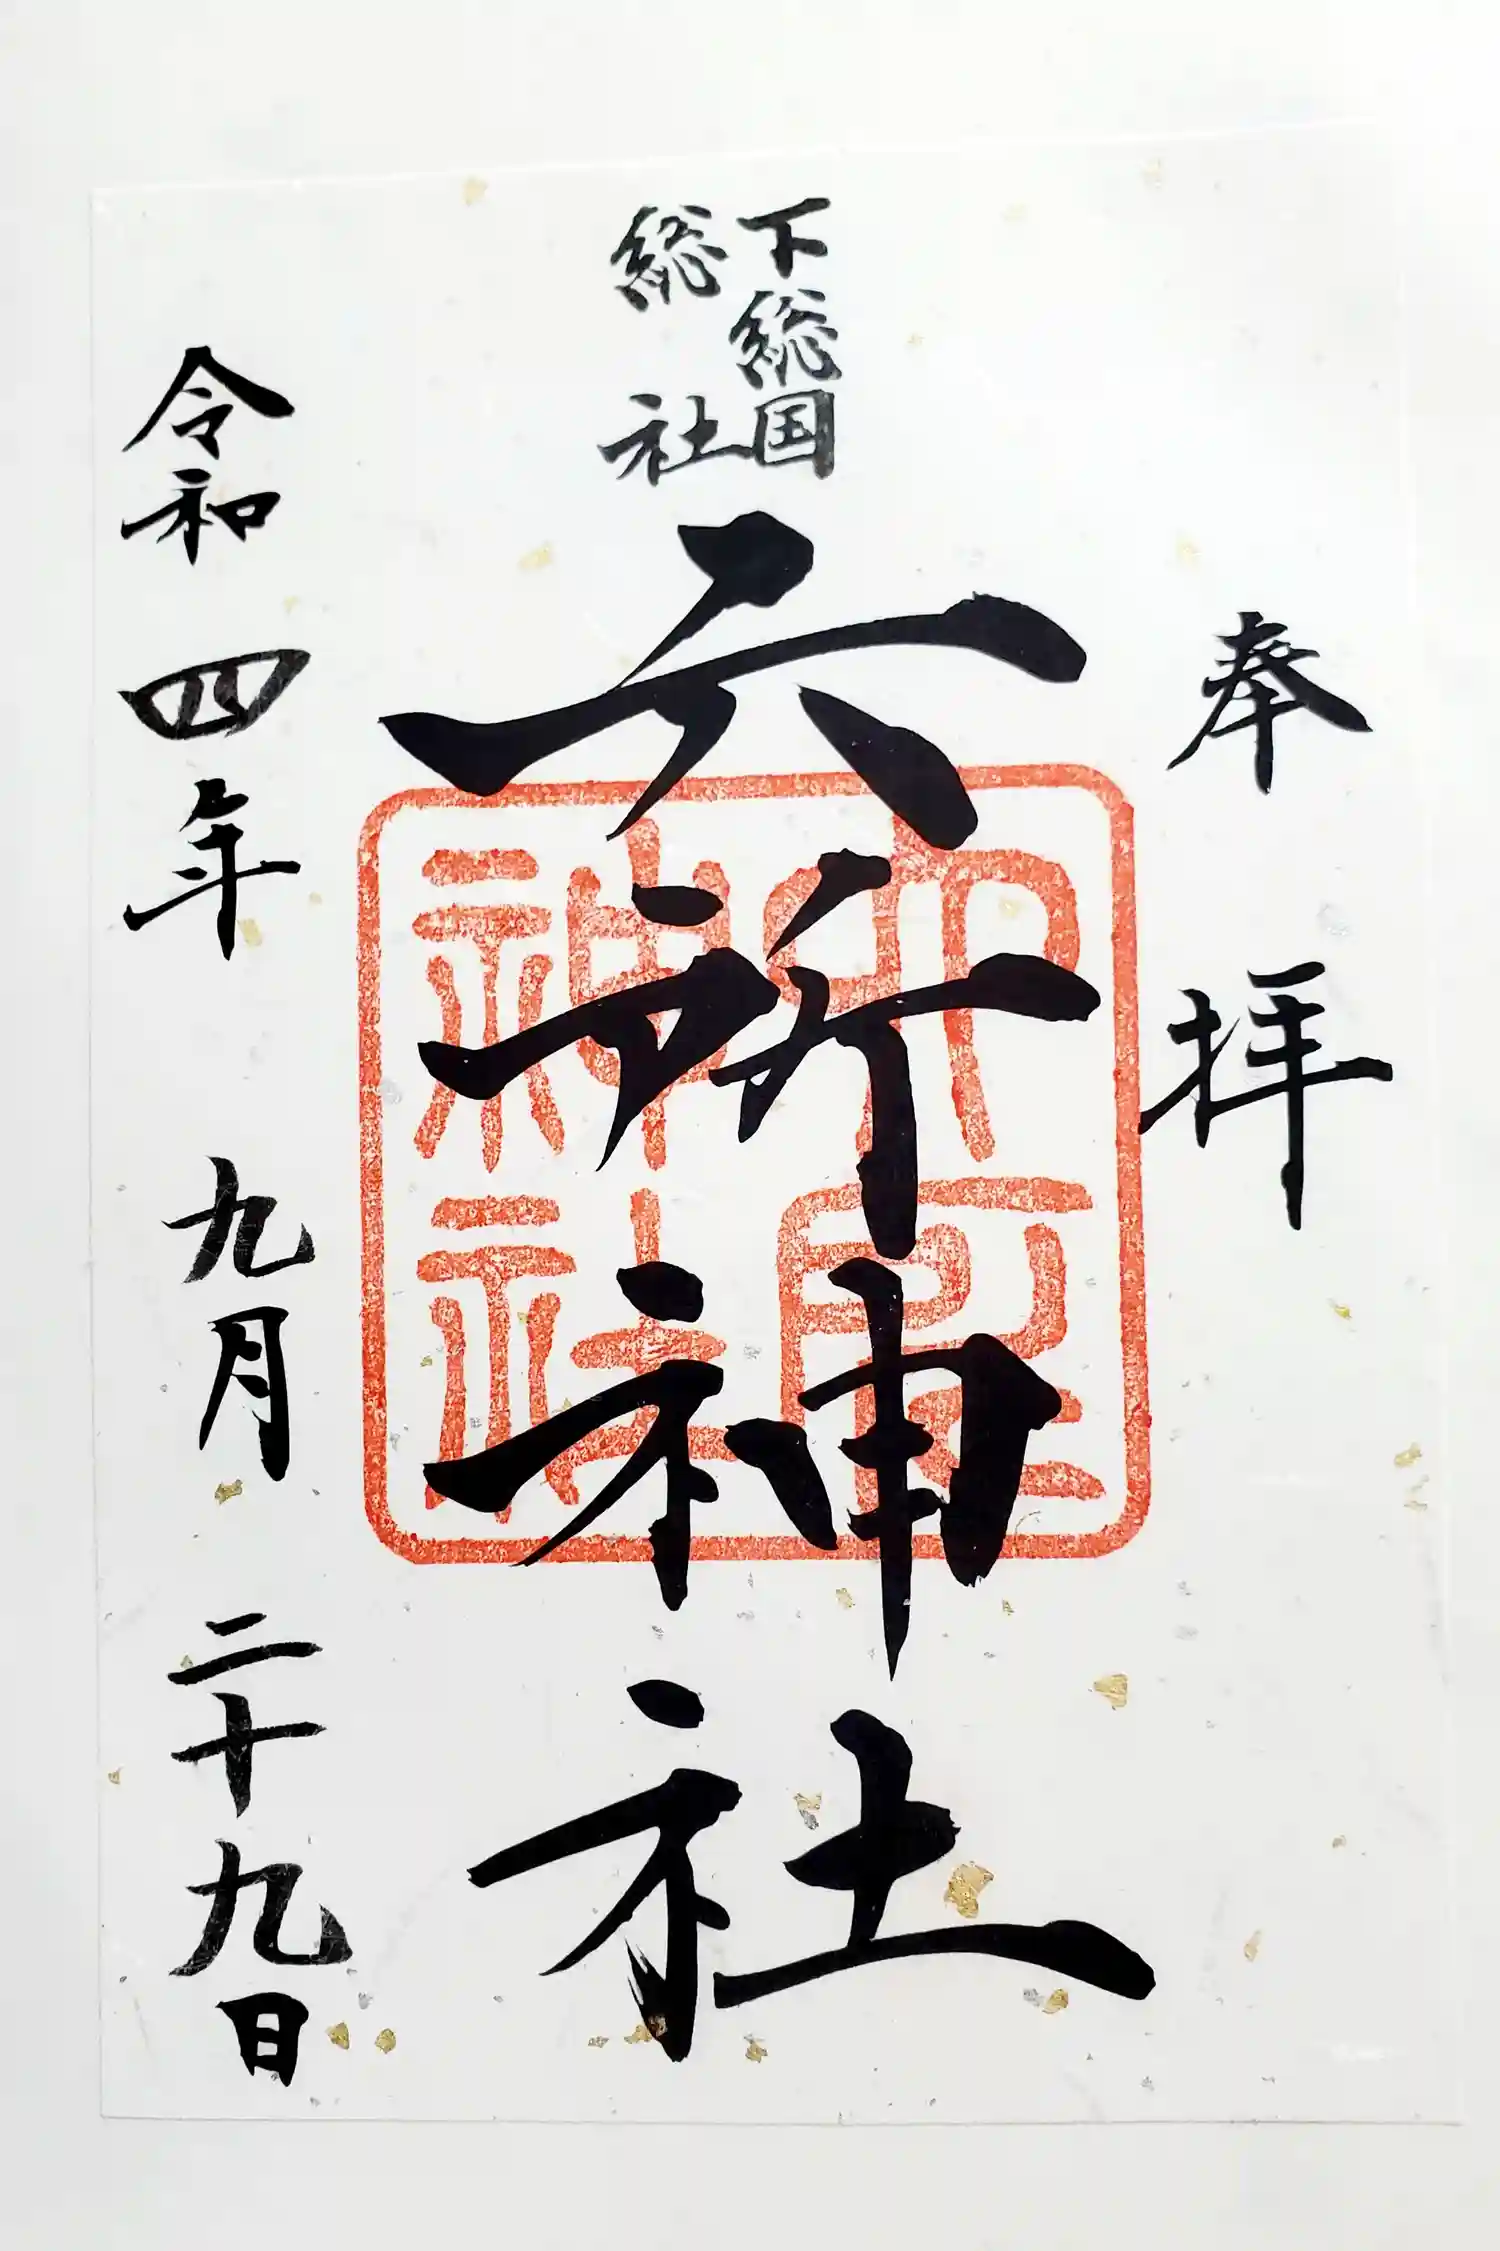 奉拝
下総国
総社
六所神社
六所神社
令和四年九月二十九日